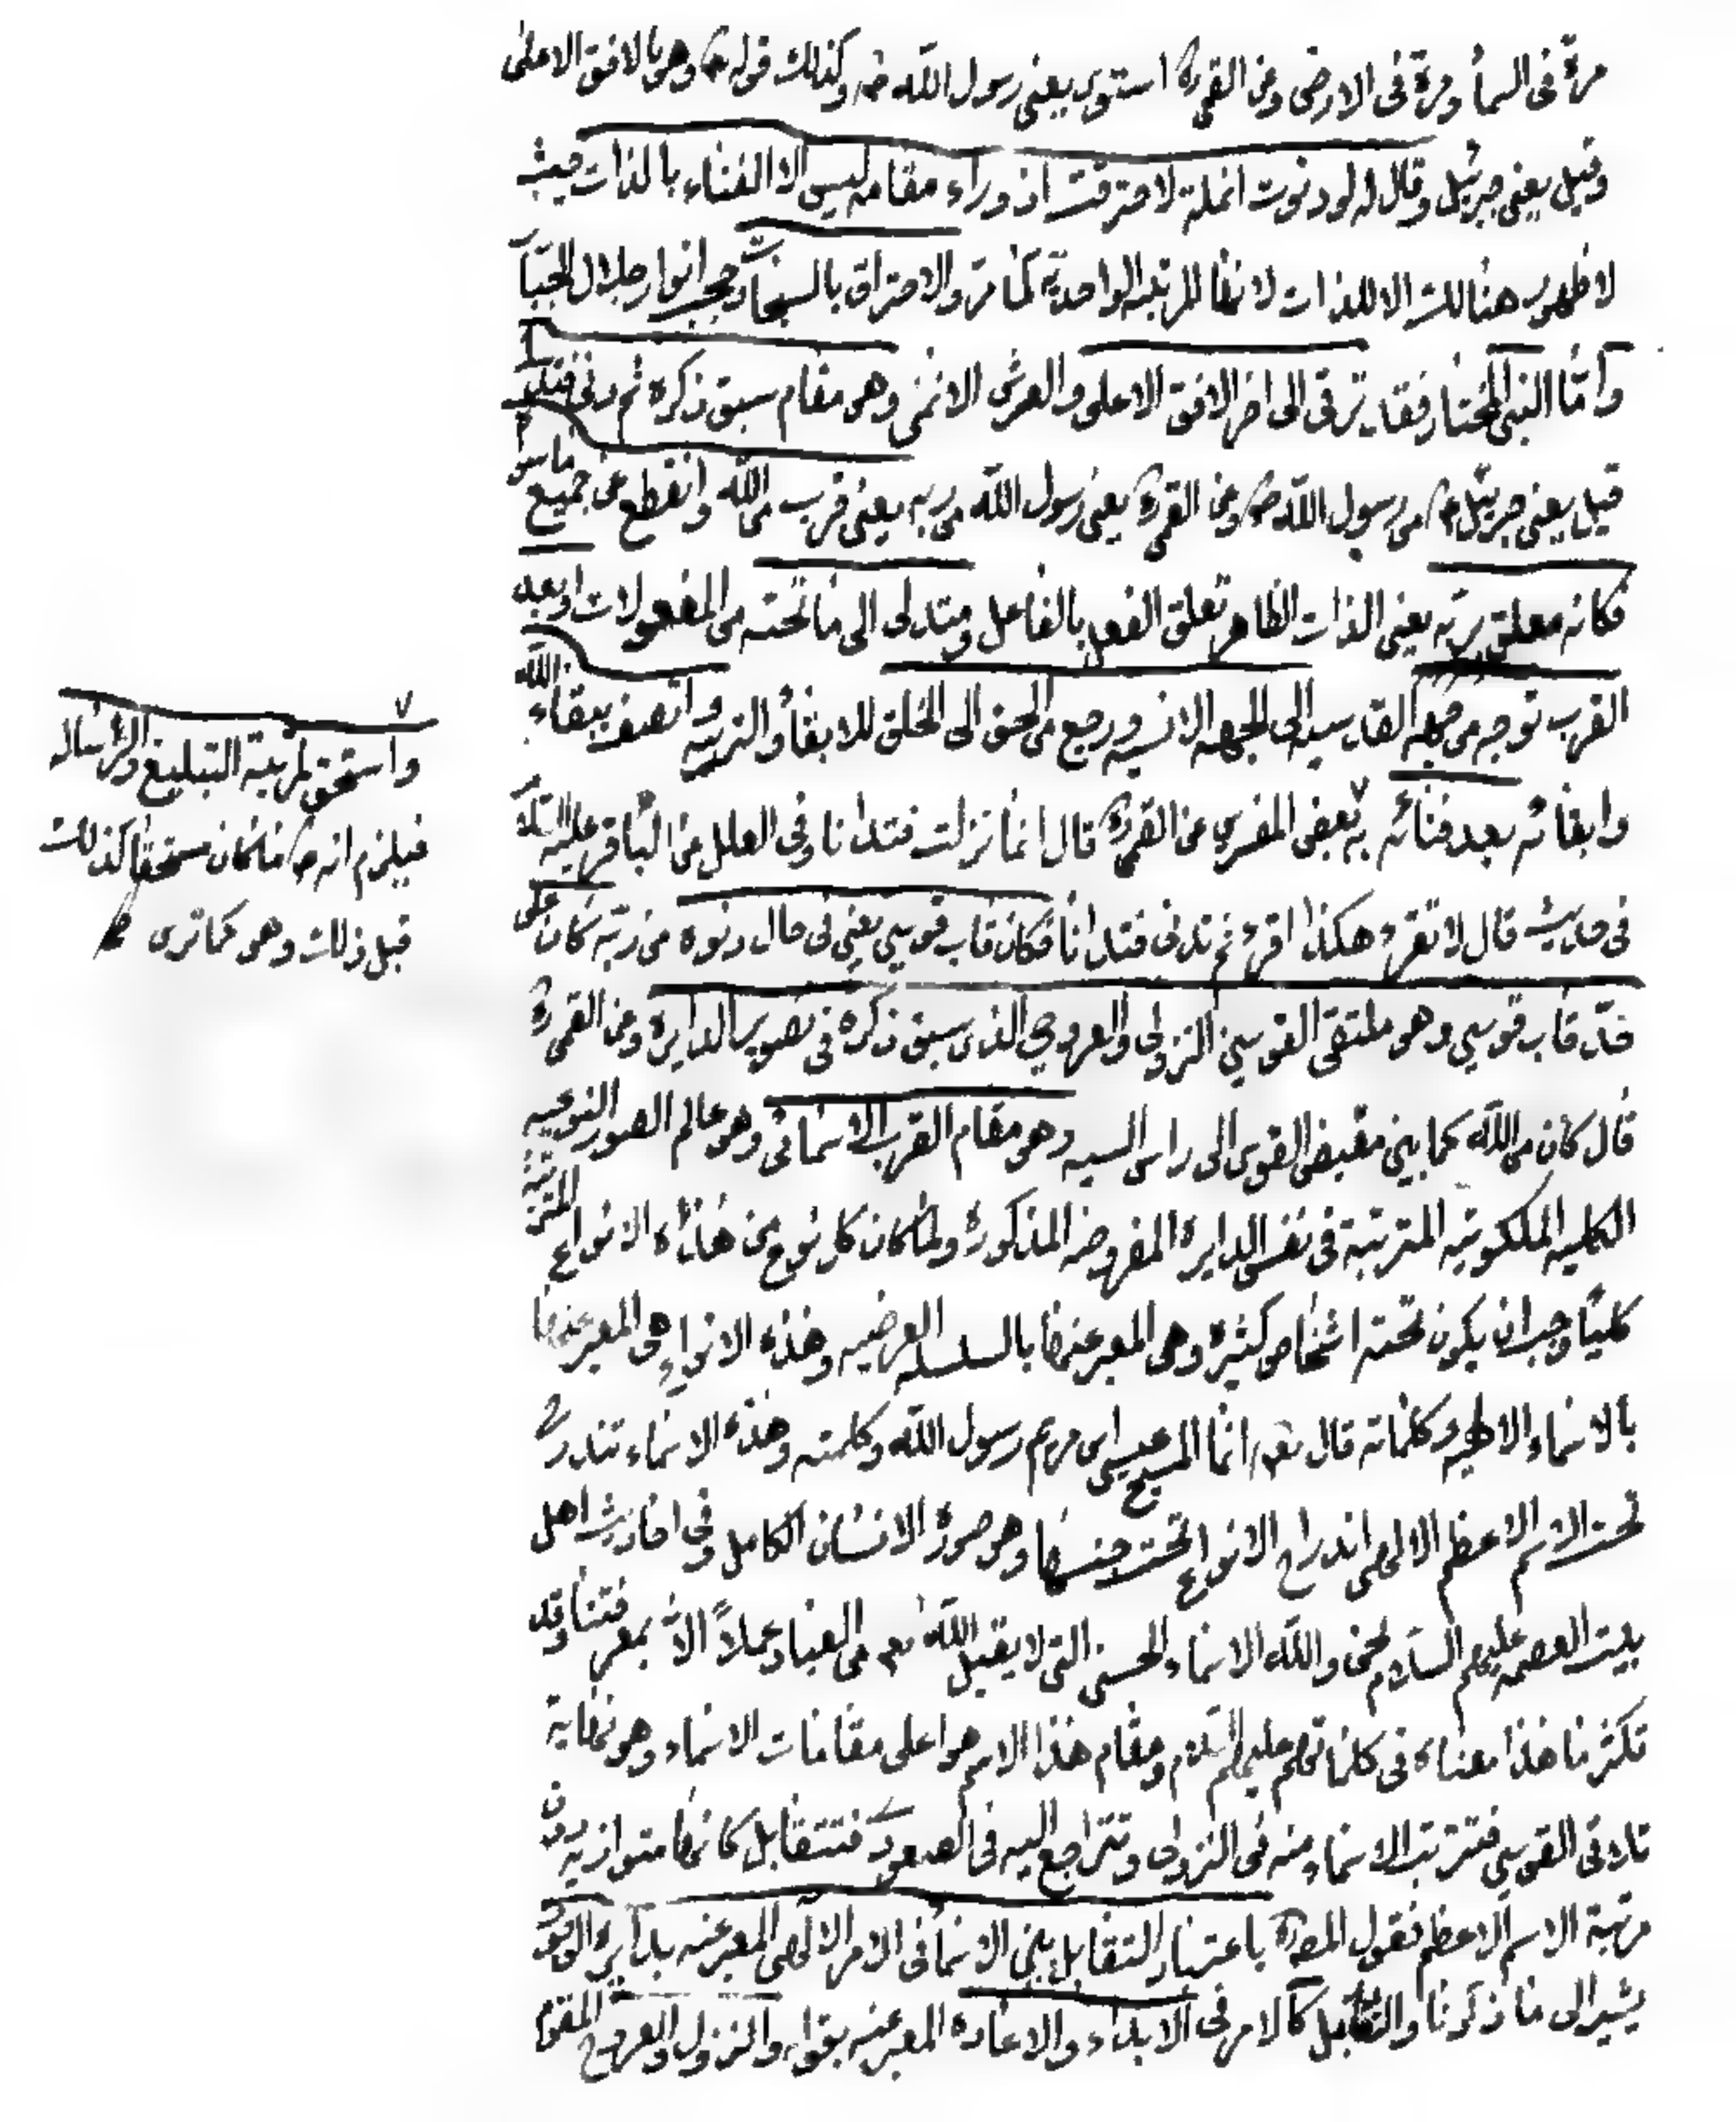 مرة فى السمأ ومرة فى الارض وعن القمى ره استوى يعنى رسول الله صه وكذلك قوله ص وهو بالافق الاعلى
وقيل يعنى جبرئيل وقال له لو دنوت انملة لاحترقت اذ وراء مقامه ليس الا الفناء بالذات حيث
لا ظهور هنالك الا للذات لانها المرتبه الواحدية كما مر والاحتراق بالسبحات وحجب انوار جلال الجبار
واما النبى المختار فقد ترقى الى اخر الافق الاعلى والعرش الاسنى وهو مقام سبق ذكره ثم دنى فتدلى
قيل يعنى جبرئيل ع من رسول الله ص وعن القمى ره يعنى رسول الله من ربه يعنى قرب من الله وانقطع عن جميع ماسو
فكانه معلق بربه يعنى الذات الظاهر تعلق الفعل بالفاعل ومتدلى الى ما تحته من المفعولات او بعد
القرب توجه من جهه القدسيه الى الجهه الانسيه ورجع من الحق الى الخلق للابقأ والتربيه واتصف ببقاء الله
وابقائه بعد فنائه به ٧ بعض المفسرين عن القمى ره قال انما نزلت فتدانا وفى العلل عن الباقر عليه السلام
فى حديث قال لا تقرء هكذا اقرء ثم تدنى فتدانا فكان قاب قوسين يعنى فى حال دنوه من ربه كان على
حد قاب قوسين وهو ملتقى القوسين النزولى والعروجى الذى سبق ذكره فى تصوير الدايره وعن القمى ره
قال كان من الله كما بين مقبض القوس الى راس السيه وهو مقام القرب الاسمائى وهو عالم الصور النوعيه
الكليه الملكوتيه المترتبة فى نفس الدايره المفروضه المذكوره ولما كان كل نوع من هذه الانواع المترتبة
كليًا وجب ان يكون تحته اشخاص كثيرة وهى المعبر عنها بالسلسله العرضيه وهذه الانواع هى المعبر عنها
بالاسماء الالهيه وكلماته قال تعه انما المسيح عيسى ابن مريم رسول الله وكلمته وهذه الاسماء تندرج
تحت الاسم الاعظم الالهى اندراج الانواع تحت جنسها وهو صورة الانسان الكامل وفى احاديث اهل
بيت العصمه عليهم السلام نحن والله الاسماء الحسنى التى لا يقبل الله تعه من العباد عملاً الا بمعرفتنا وقد
تكثر ما هذا معناه فى كلماتهم عليهم السلام ومقام هذا الاسم هو اعلى مقامات الاسماء وهو نهاية
تلاقى القوسين فتترتب الاسماء منه فى النزولى وتتراجع اليه فى الصعودى فتتقابل كانها متوازيه دون
مرتبة الاسم الاعظم فقول المصره باعتبار التقابل بين الاسمأ فى الامر الالهى المعبر عنه بدايرة الوجود
يشير الى ما ذكرنا والتقابل كالامر فى الابداء والاعاده المعبر عنه بقوله والنزول والعروج المقوم
٧
واستحق لمرتبة التبليغ والرساله
فيلزم انه ص ما كان مستحقا كذلك
قبل ذلك وهو كما ترى